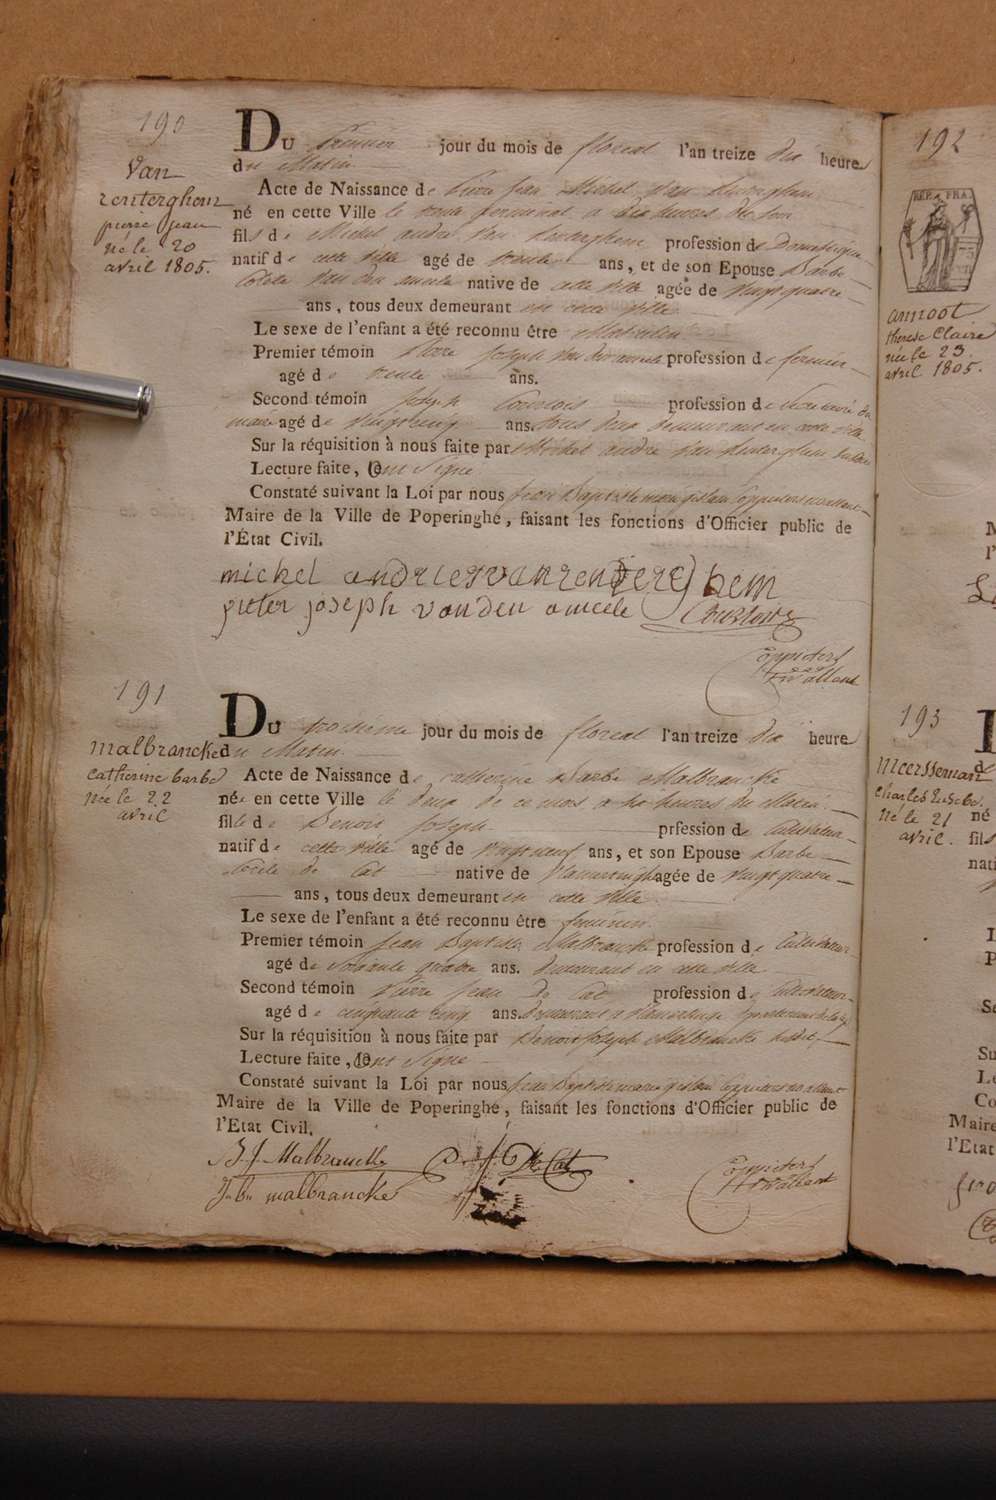 190
Van
renterghem
pierre jean
né le 20
avril 1805.
Du Premier jour du mois de floreal l'an treize dix heure
du Matin
Acte de Naissance de Pierre Jean Michel Van Renterghem
né en cette Ville le trente germinal a dix heures du soir
fils de Michel andre Van Renterghem profession de Domestique
natif de cette ville agé de trente ans, et de son Epouse Barbe
Colete Van den ameele native de cette ville agée de vingt quatre
ans, tous deux demeurant en cette ville
Le sexe de l'enfant a été reconnu être Masculin
Premier témoin Pierre Joseph Van den ameele profession de fermier
agé de trente ans.
Second témoin Joseph Courtois profession de Secretaire du
maire agé de vingt cinq ans. tous deux demeurant en cette ville
Sur la réquisition à nous faite par Michel andre Van Renterghem
Lecture faite, le ont Signé
Constaté suivant la Loi par nous Jean Baptiste
Maire de la Ville de Poperinghe, faisant les fonctions d'Officier public de
l'État Civil.
michel andries van renterghem
pieter joseph vanden ameele Courtois
191
malbrancke
catherine barbe
née le 22
avril
Du troisieme jour du mois de floreal l'an treize dix heure
du Matin
Acte de Naissance de Catherine Barbe Malbrancke
née en cette Ville le deux de ce mois a heures du Matin
fille de Benoit Joseph prfession de Cultivateur
natif de cette ville agé de vingt neuf ans, et son Epouse Barbe
Cecile De Cat native de Vlamertinghe agée de vingt quatre
ans, tous deux demeurant en cette ville
Le sexe de l'enfant a été reconnu être feminin
Premier témoin Jean Baptiste Malbrancke profession de Cultivateur
agé de soixante quatre ans. demeurant en cette ville
Second témoin Pierre Jean De Cat profession de Cultivateur
agé de cinquante cinq ans. Demeurant a Vlamertinghe
Sur la réquisition à nous faite par Benoit Joseph Malbrancke
Lecture faite, le ont Signe
Constaté suivant la Loi par nous Jean Baptiste
Maire de la Ville de Poperinghe, faisant les fonctions d'Officier public de
l'Etat Civil.
B J Malbrancke De Cat
J B malbrancke
192
RÉP. FRA.
annoot
therese Claire
née le 23
avril 1805.
193
meersseman
charles
né le 21
avril.
né
fils
Maire
l'Etat